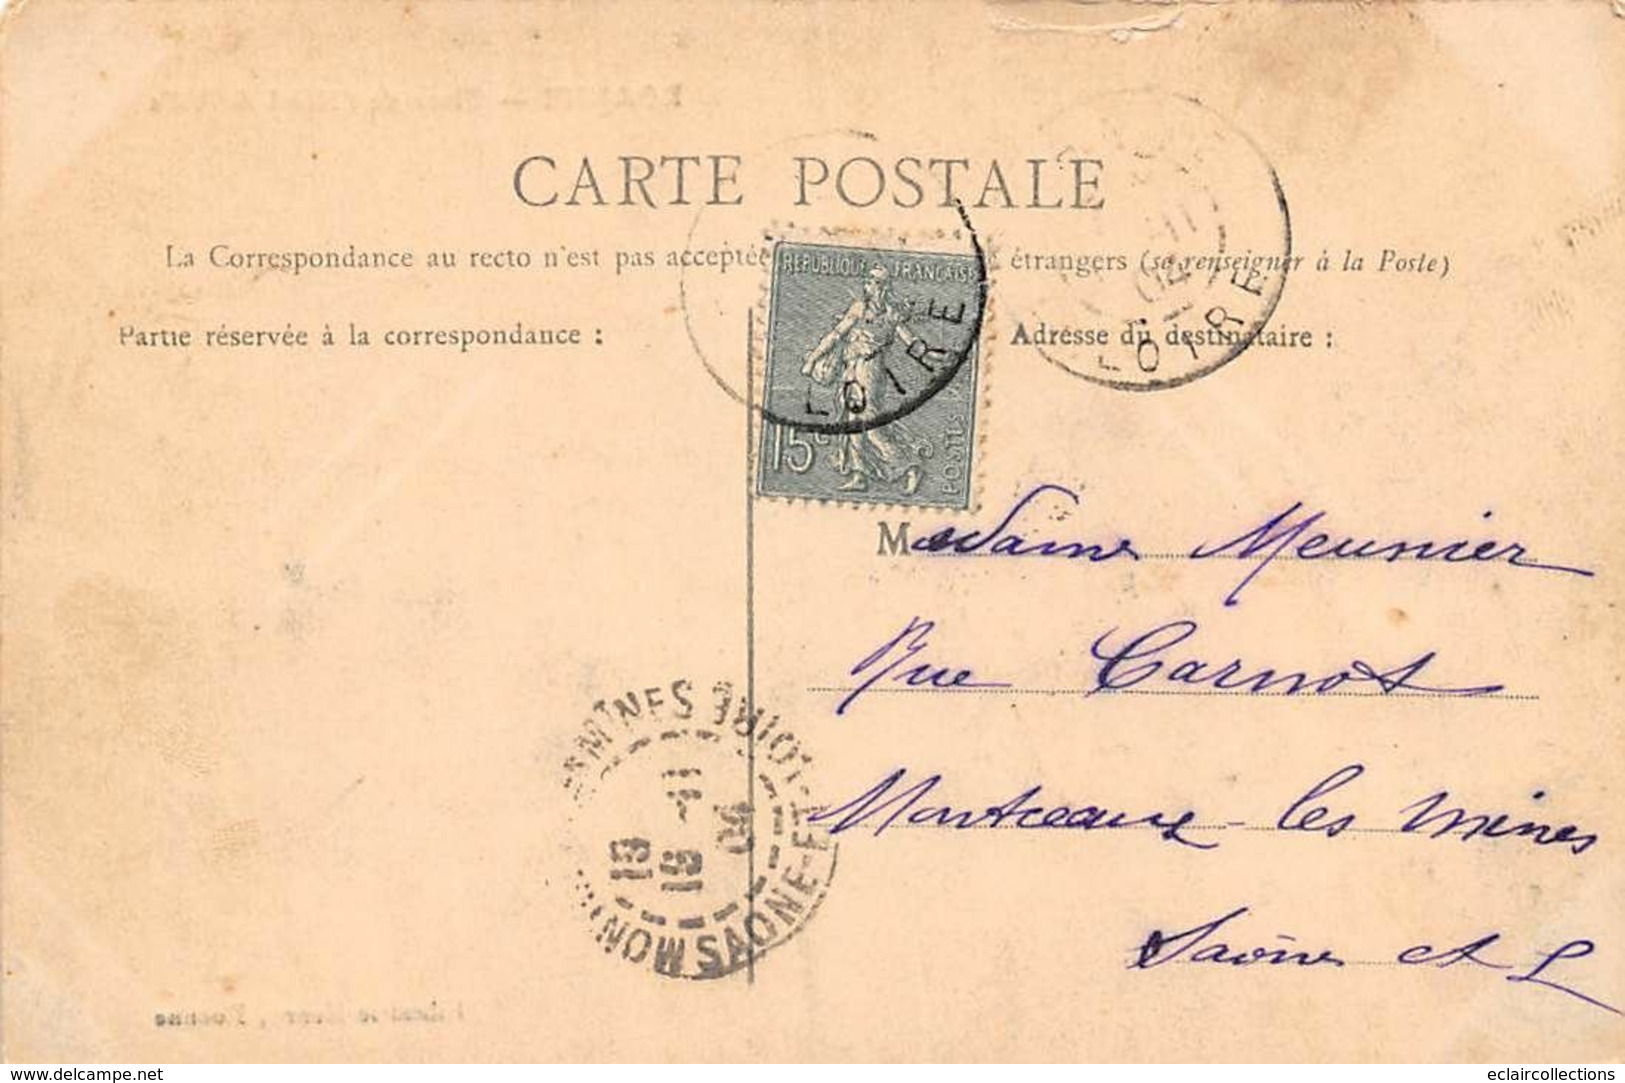 CARTE POSTALE
La Correspondance au recto n'est pas acceptée étrangers (se renseigner à la Poste)
Partie réservée à la correspondance :
Adresse du destinataire :
REPUBLIQUE FRANÇAISE
15c
POSTES
LOIRE
LOIRE
04
Madame Meunier
Rue Carnot
Montceaux-les mines
Saône et L
MINES
SAONE-ET-LOIRE
delcampe.net
eclaircollections